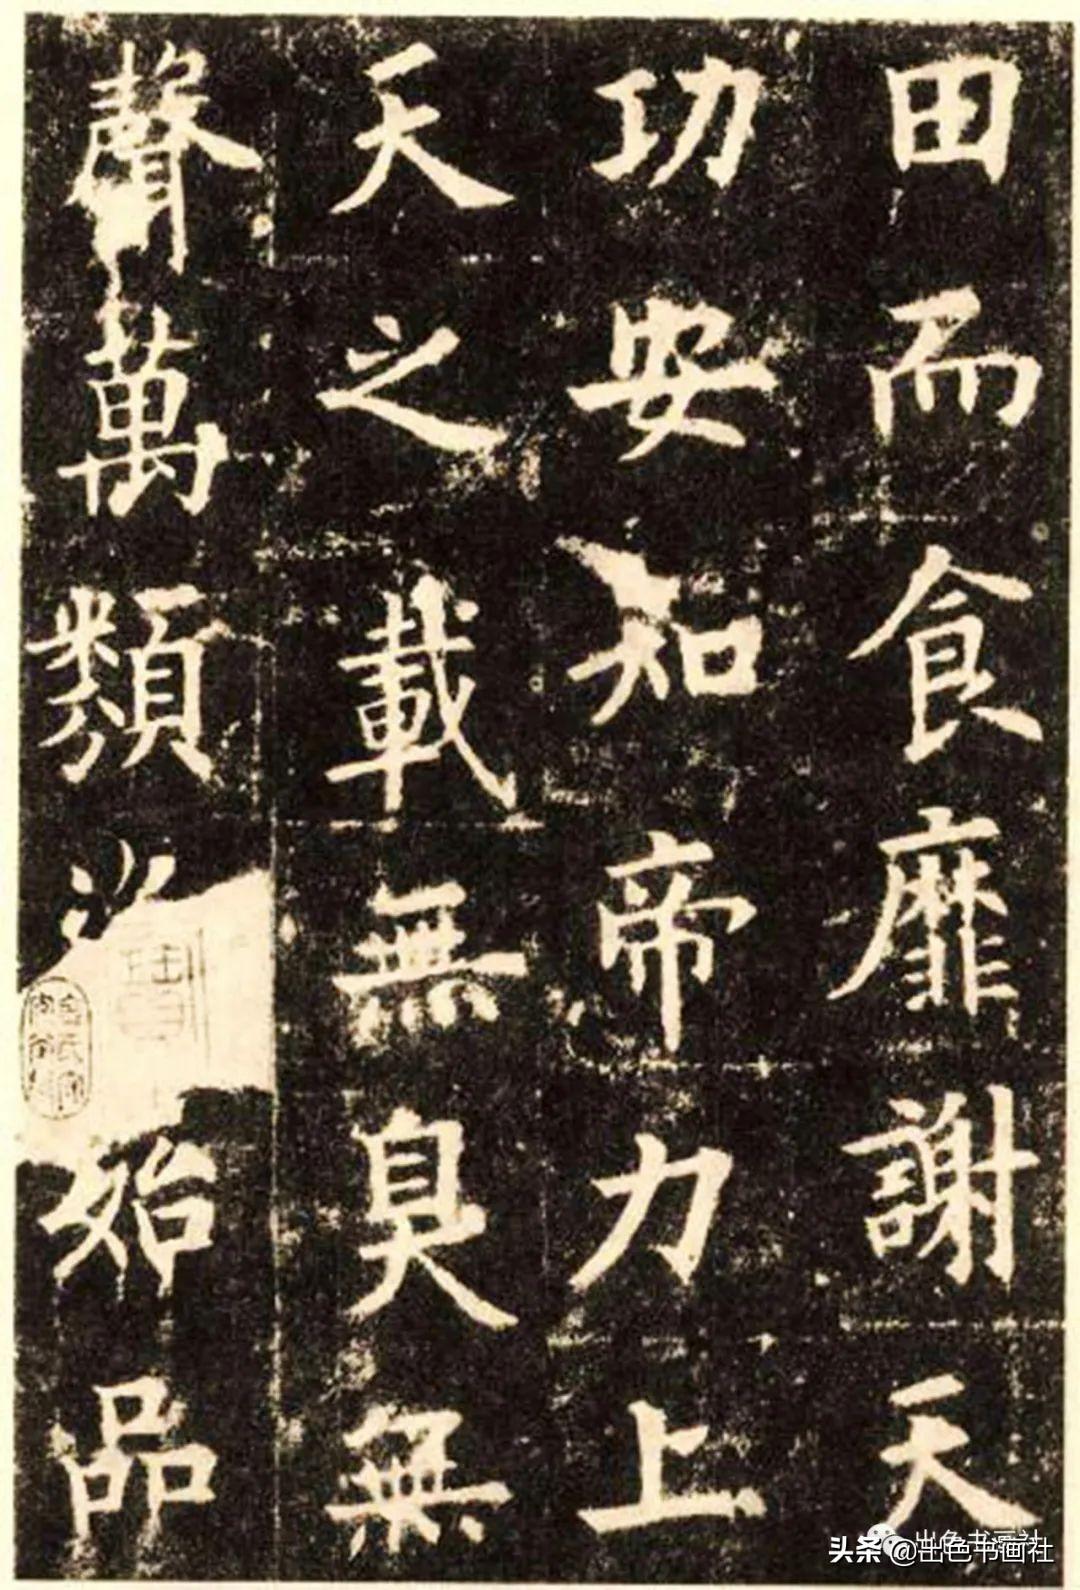 田而食靡謝天
功安知帝力上
天之載無臭無
聲萬類始品
出色书画社
头条 @出色书画社